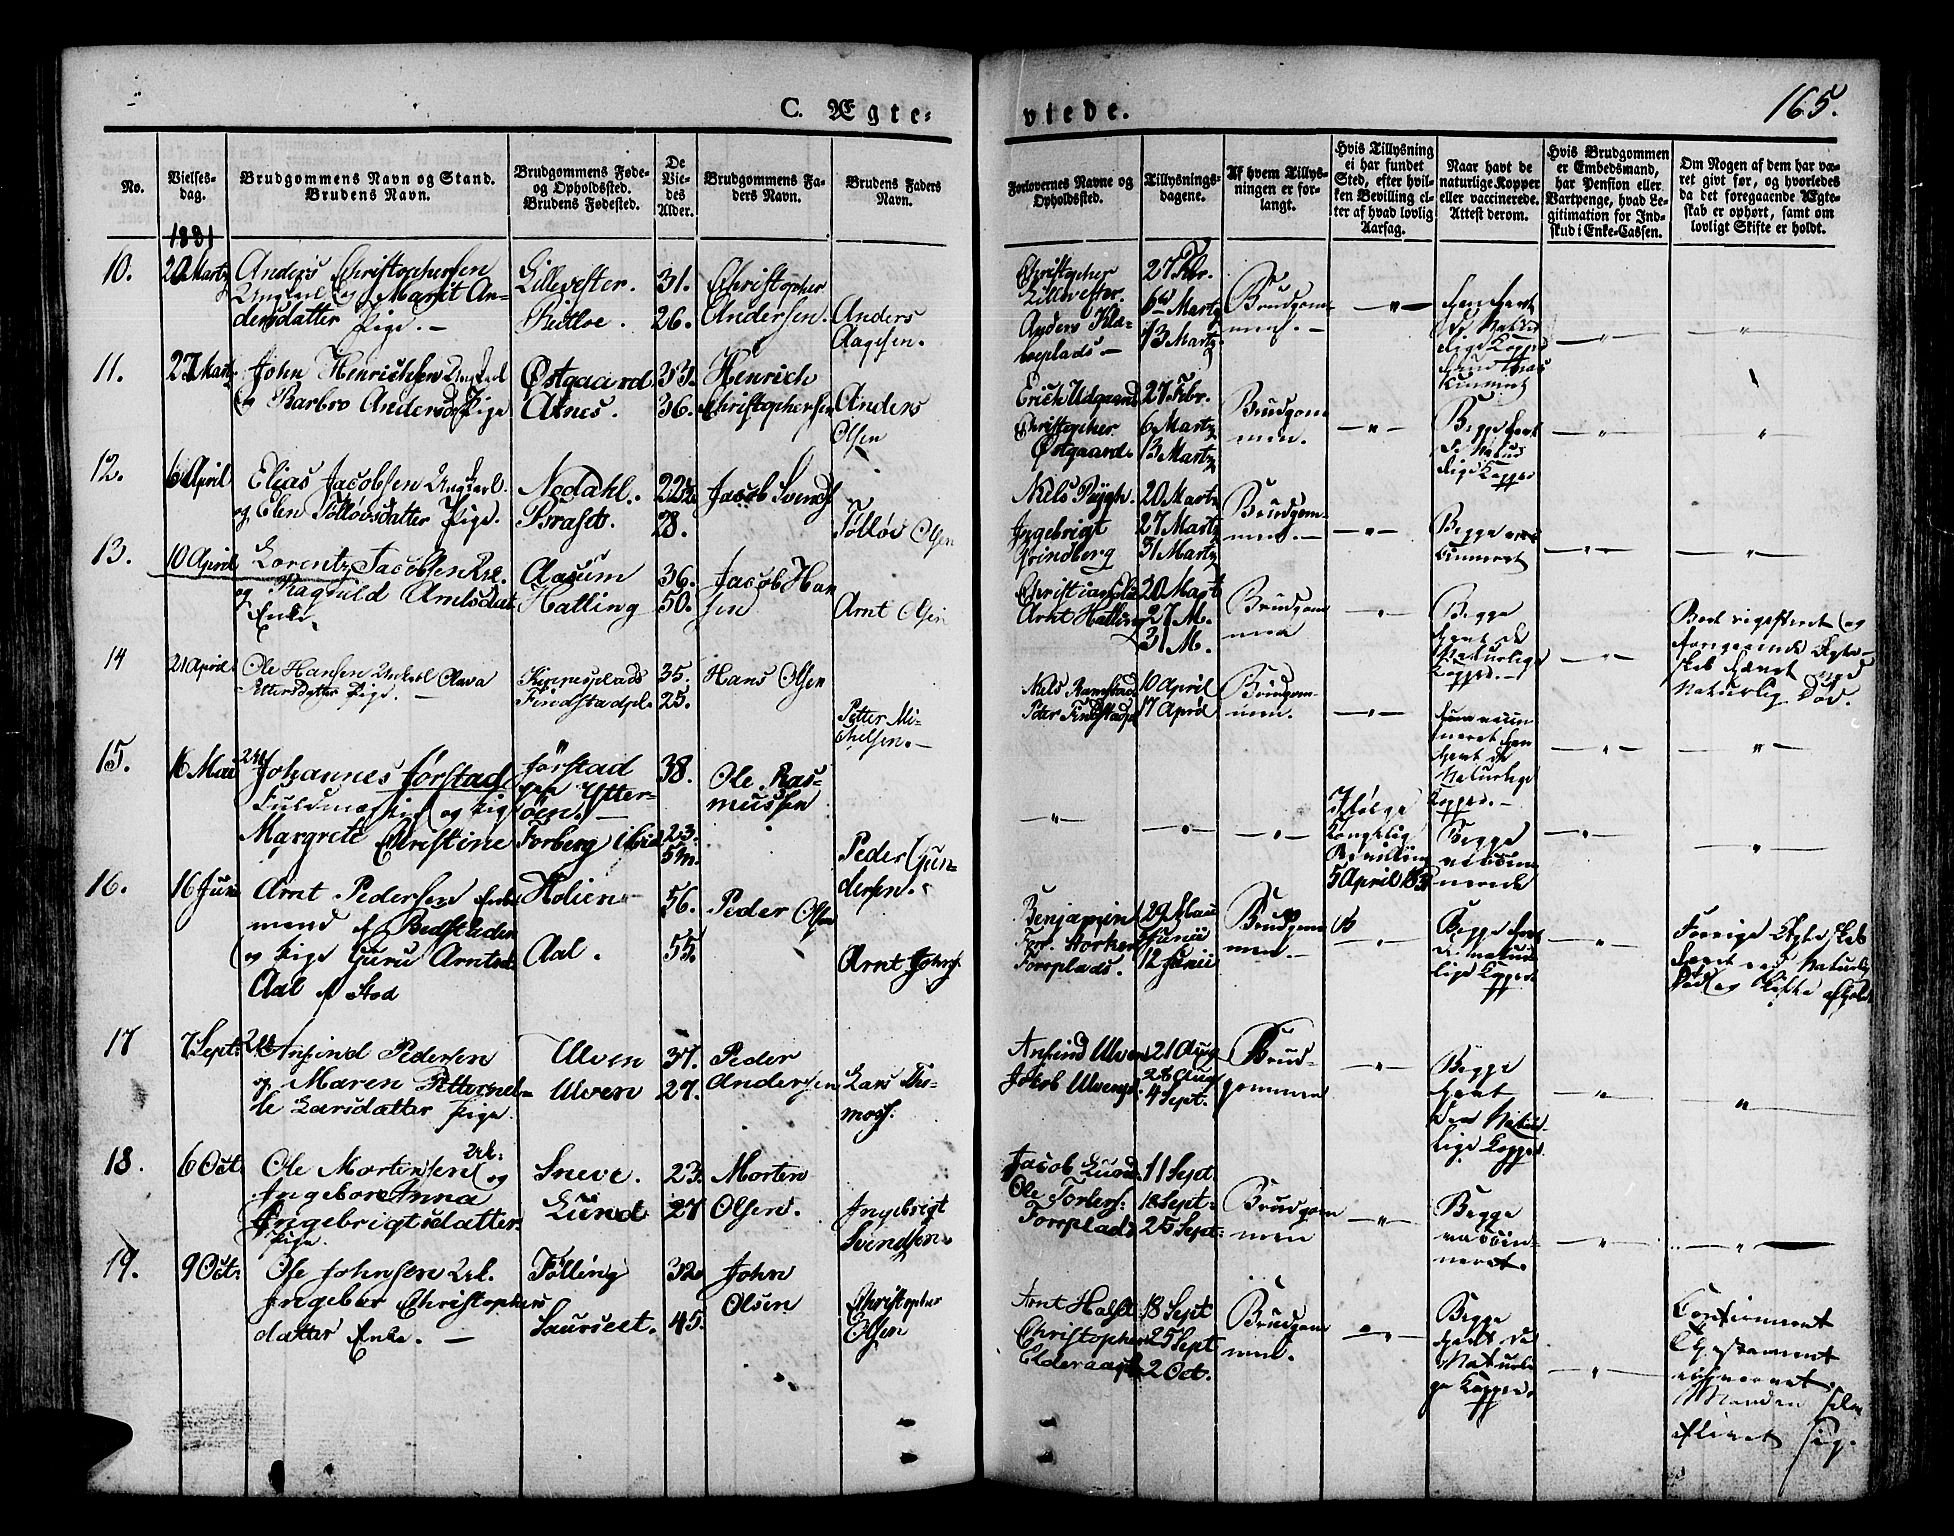 C. Ægte-
viede.
165.
No.
Vielses-
dag.
Brudgommens Navn og Stand.
Brudens Navn.
Brudgommens Føde-
og Opholdssted.
Brudens Fødested.
De
Vie-
des
Alder.
Brudgommens Fa-
ders Navn.
Brudens Faders
Navn.
Forlovernes Navne og
Opholdssted.
Tillysnings-
dagene.
Af hvem Tillys-
ningen er for-
langt.
Hvis Tillysning
ei har fundet
Sted, efter hvil-
ken Bevilling el-
ler af hvad lovlig
Aarsag.
Naar havt de
naturlige Kopper
eller vaccinerede.
Attest derom.
Hvis Brudgommen
er Embedsmand,
har Pension eller
Vartpenge, hvad Le-
gitimation for Ind-
skud i Enke-Cassen.
Om Nogen af dem har væ-
ret givt før, og hvorledes
da det foregaaende Ægte-
skab er ophørt, samt om
lovligt Skifte er holdt.
1831
10.
20 Martz
Anders Christophersen
Ungkarl og Marit An-
dersdatter Pige. —
Lillevester.
31.
26.
Christopher
Andersen.
Anders
Aagesen.
Christopher
Lillevester.
Anders
27 Febr.
6te Martz
13 Martz
Brudgom-
men. —
11.
27 Martz
John Henrichsen Ungkarl
og Barbro Andersd. Pige
Østgaard
Aines.
33.
36.
Henrich
Christophersen
Anders
Olsen
Erich Udgaard
Christopher
Østgaard.
27 Febr.
6 Martz
13 Martz
Brudgom-
men.
Begge havt
de Natur-
lige Kopper
12.
6 April
Elias Jacobsen Ungkarl.
og Elen Tølløvsdatter Pige.
Nodahl.
Brasto.
28.
Jacob Svends
Tølløv Olsen
Niels
Ingebrigt
Grindberg
20 Martz
27 Martz
31 Martz
Brudgom-
men. —
Begge vac-
cineret
13.
10 April
Lorentz Jacobsen
og Ragnild Arntsdat.
Enke.
Aasum
Hatling
36.
50.
Jacob Han
sen
Arnt Olsen
Arnt Hatling
20 Mart
27 M.
31 M.
Brudgom
men
Begge
havt de
Naturlige
Kopper.
Naturlig Død.
14
21 April
Ole Hansen Unkarl Olava
Pettersdatter Pige. —
Findstadpl.
35.
25.
Hans Olsen
Petter Mi-
chelsen. —
Niels Ramstad
Peter Findstadpl
10 April
17 April
Brudgom-
men.
15.
16 Mai
Johannes Førstad
Fuldmægtig og Pige
Margrete Christine
Førstad
paa Ytter-
øen. —
Forberg
38.
23.
Ole Ras-
mussen
Peder Gun-
dersen.
Ifølge
Kongelig
Bevilling
5 April 183
Begge
vaccine-
rerede
16.
16 Juni
Arnt Pedersen Enke
mand af Bedstaden
og Pige Guru Arntsd.
Aal af Stod
Holien
Aal.
56.
55.
Peder Olsen
Arnt Johns.
Benjamin
Torplads.
29 Mai
5 Junii
12 Junii
Brudgom
men. —
Begge havt
de natur-
lige Kopper
Forrige Ægteskab
hævet ved Naturlig
Død og Skifte afholdt
17
7 Sept.
Ansind Pedersen
og Maren Petternel-
le Larsdatter Pige.
Ulven
Ulven
37.
27.
Peder
Andersen
Lars Tho-
mass.
Ansind Ulven
Jakob Ulvenpl.
21 Aug
28 Aug
4 Sept.
Brud-
gommen
Begge
havt
den Natur-
lige Kopper
18.
6 Oct.
Ole Mortensen og
Ingebor Anna
Ingebrigtsdatter
Pige.
Sneve.
Lund
23.
27
Morten
Olsen.
Ingebrigt
Svendsen.
Jacob Lund
Ole Torlers.
Torplads
11 Sept
18 Sept.
25 Sept.
Brudgom
men
Begge
vaccin-
neret.
19.
9 Oct.
Ole Johnsen
Ingebor Christophers
datter Enke. —
Følling
Saurseet.
32
45.
John
Olsen
Christopher
Olsen
Arnt
Christopher
Elderaas
18 Sept
25 Sept
2 Oct.
Brudgom
men.
Begge
havt de
Naturli-
ge Kopper.